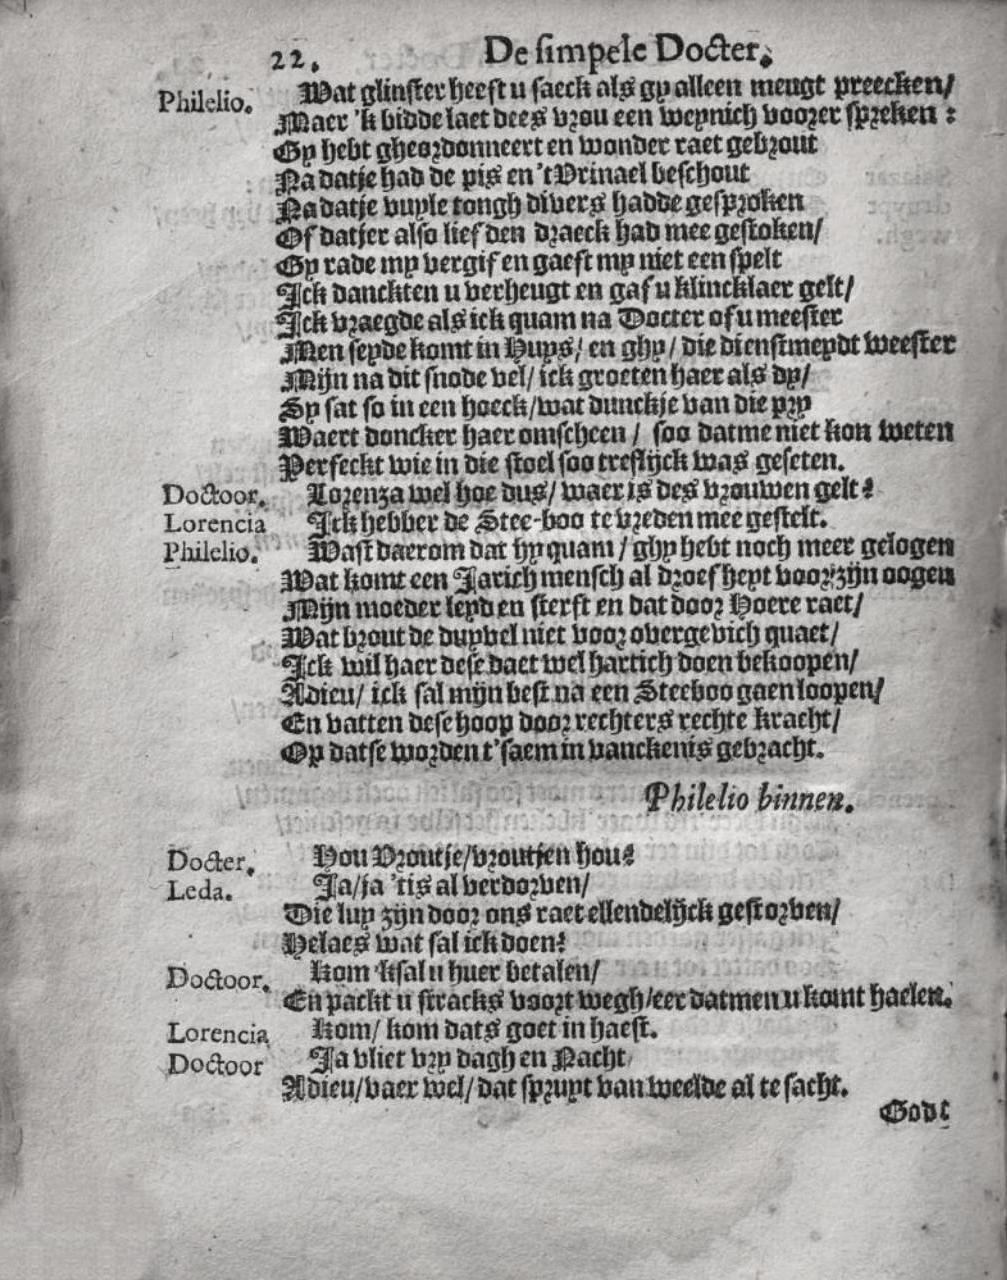 22. De simpele Docter.
Philelio. Wat glinster heeft u saeck als gy alleen meugt preecken/
Maer 'k bidde laet dees vrou een weynich voorer spreken :
Gy hebt gheordonneert en wonder raet gebrout
Na datje had de pis en 't Vrinael beschout
Na datje vuyle tongh divers hadde gesproken
Of datjer also lief den draeck had mee gestoken/
Gy rade my vergif en gaeft my niet een spelt
Ick danckten u verheugt en gaf u klincklaer gelt/
Ick vraegde als ick quam na Docter of u meester
Men seyde komt in Huys/ en ghy/ die dienstmeydt weester
Mijn na dit snode vel/ ick groeten haer als dy/
Sy sat so in een hoeck/wat dunckje van die pry
Waert doncker haer omscheen/ soo datme niet kon weten
Perfeckt wie in die stoel soo treflijck was geseten.
Doctoor. Lorenza wel hoe dus/ waer is des vrouwen gelt?
Lorencia Ick hebber de Stee-boo te vreden mee gestelt.
Philelio. Wast daerom dat hy quam/ ghy hebt noch meer gelogen
Wat komt een Jarich mensch al droefheyt voor zijn oogen
Mijn moeder leyd en sterft en dat door Hoere raet/
Wat brout de duyvel niet voor overgevich quaet/
Ick wil haer dese daet wel hartich doen bekoopen/
Adieu/ ick sal mijn best na een Steeboo gaen loopen/
En vatten dese hoop door rechters rechte kracht/
Op datse worden t'saem in vanckenis gebracht.
Philelio binnen.
Docter. Hou Vroutje/vroutjen hou?
Leda. Ja/ja 'tis al verdorven/
Die luy zijn door ons raet ellendelijck gestorven/
Helaes wat sal ick doen?
Doctoor. Kom 'ksal u huer betalen/
En packt u stracks voort wegh/eer datmen u komt haelen.
Lorencia Kom/ kom dats goet in haest.
Doctoor Ja vliet vry dagh en Nacht/
Adieu/vaer wel/ dat spruyt van weelde al te sacht.
Godt